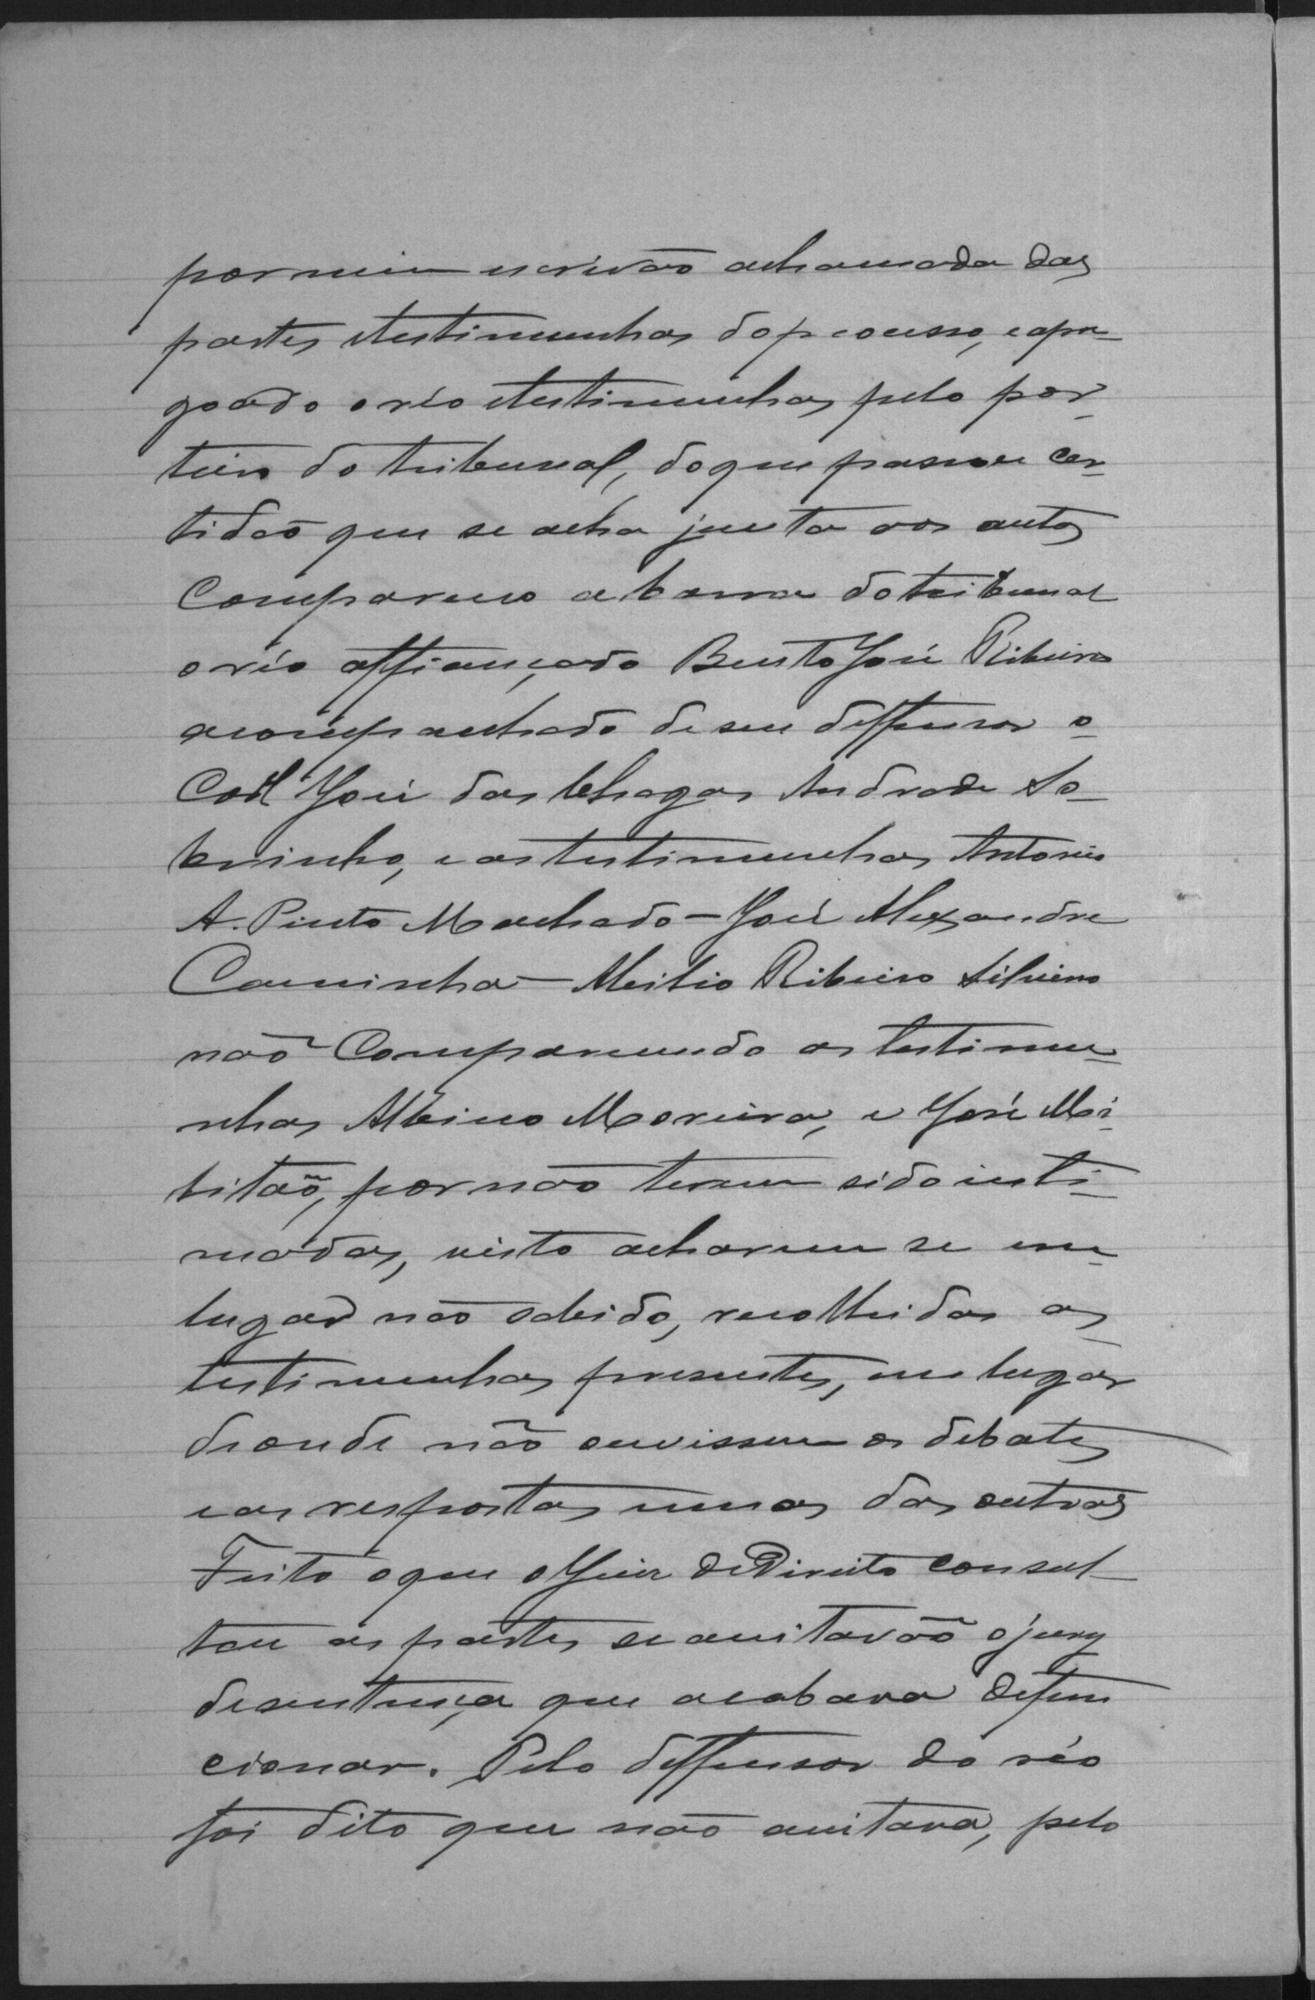 por mim escrivão a chamada das
partes e testimunhas do processo, e apre-
goado o réo e testimunhas pelo por-
teiro do tribunal, do que passou cer-
tidão que se acha junta aos autos
Compareceo a barra do tribunal
o réo affiançado Bento José Ribeiro
acompanhado de seu deffensor o
José das Chagas Andrade So-
brinho, e as testimunhas Antonio
A. Pinto Machado – José Alexandre
Caminha – Ribeiro Silvério
não Comparecendo as testimu-
nhas Albino Moreira, e José
por não terem sido inti-
madas, visto acharem se em
lugar não sabido, recolhidas as
testimunhas presentes, em lugar
d'onde não ouvissem os debates
e as respostas umas das outras
Feito o que o Juiz de Direito consul-
tou as partes se aceitavão o jury
de sentença que acabava de func
cionar. Pelo deffensor do réo
foi dito que não aceitava, pelo